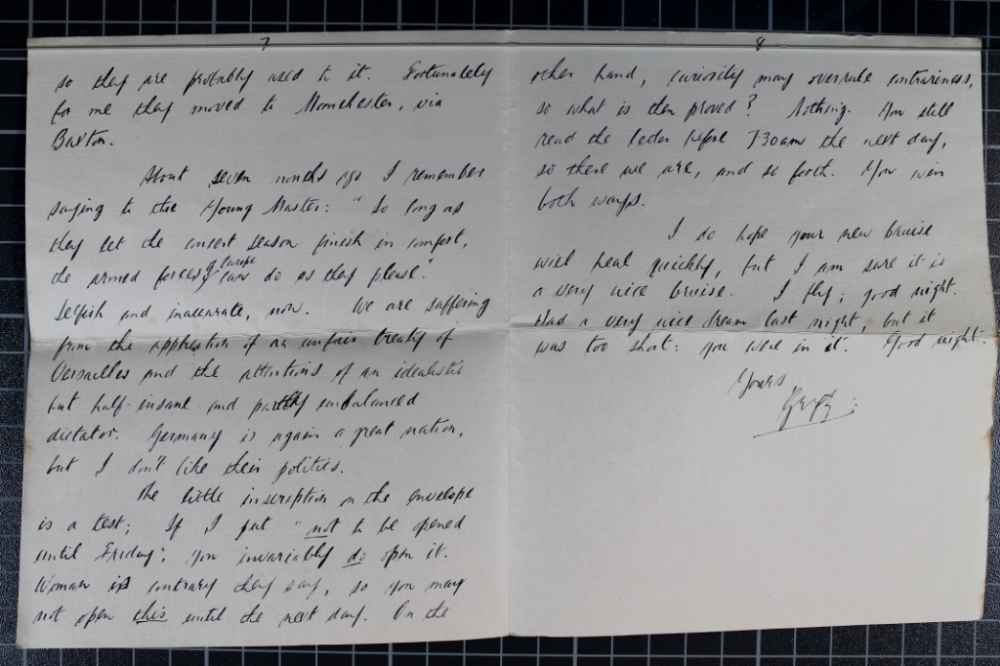 7
so they are probably used to it. Fortunately
for me they moved to Manchester, via
Buxton.
About seven months ago I remember
saying to the Young Master: "So long as
they let the concert season finish in comfort,
the armed forces of Europe can do as they please."
Selfish and inaccurate, now. We are suffering
from the oppression of an unfair treaty of
Versailles and the attentions of an idealistic
but half-insane and partly unbalanced
dictator. Germany is again a great nation,
but I don't like their politics.
The little inscription on the envelope
is a test; If I put "not to be opened
until Friday", you invariably do open it.
Woman is contrary they say, so you may
not open this until the next day. On the
8
other hand, curiosity may overrule contrariness,
so what is then proved? Nothing. You still
read the letter before 7.30am the next day,
so there we are, and so forth. You win
both ways.
I do hope your new bruise
will heal quickly, but I am sure it is
a very nice bruise. I fly; good night.
Had a very nice dream last night, but it
was too short: you were in it. Good night.
Yours